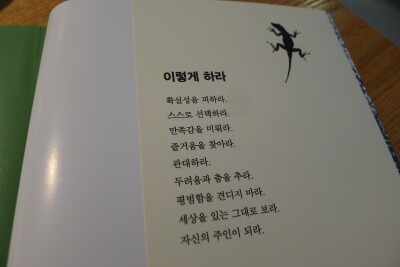 이렇게 하라
확실성을 피하라.
스스로 선택하라.
만족감을 미뤄라.
즐거움을 찾아라.
관대하라.
두려움과 춤을 추라.
평범함을 견디지 마라.
세상을 있는 그대로 보라.
자신의 주인이 되라.